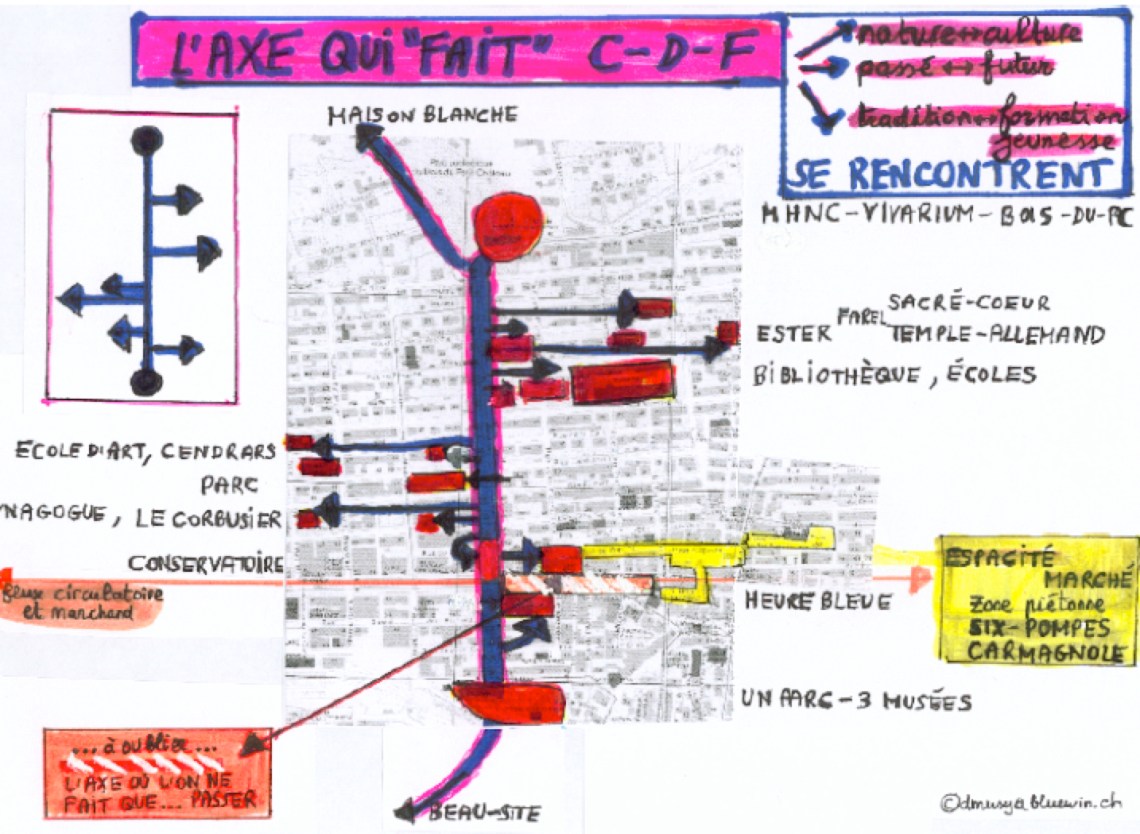 L'AXE QUI "FAIT" C-D-F
nature↔culture
passé ↔ futur
tradition↔formation
jeunesse
SE RENCONTRENT
MAISON BLANCHE
MHNC-VIVARIUM-BOIS-DU-PC
SACRÉ-COEUR
ESTER FAREL TEMPLE-ALLEMAND
BIBLIOTHÈQUE, ÉCOLES
ECOLE D'ART, CENDRARS
PARC
NAGOGUE, LE CORBUSIER
CONSERVATOIRE
flux circulatoire
et marchand
HEURE BLEUE
ESPACITÉ
MARCHÉ
Zone piétonne
SIX-POMPES
CARMAGNOLE
UN PARC-3 MUSÉES
... à oublier ...
L'AXE OÙ L'ON NE
FAIT QUE... PASSER
BEAU-SITE
©dmusy@bluewin.ch